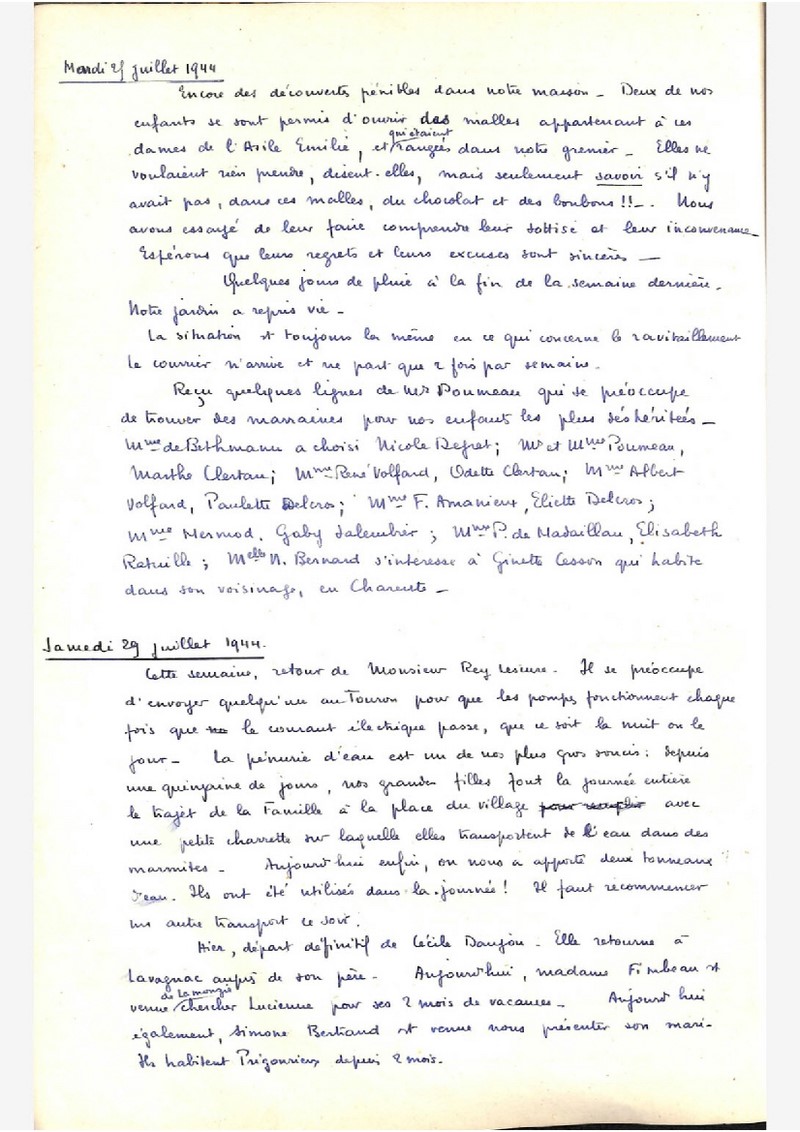 Mardi 25 juillet 1944
Encore des découvertes pénibles dans notre maison _ Deux de nos
enfants se sont permis d'ouvrir des malles appartenant à ces
dames de l'Asile Emilie, et qui étaient rangées dans notre grenier _ Elles ne
voulaient rien prendre, disent-elles, mais seulement savoir s'il n'y
avait pas, dans ces malles, du chocolat et des bonbons !! _. Nous
avons essayé de leur faire comprendre leur sottise et leur inconvenance _
Espérons que leurs regrets et leurs excuses sont sincères _
Quelques jours de pluie à la fin de la semaine dernière.
Notre jardin a repris vie _
La situation est toujours la même en ce qui concerne le ravitaillement
le courrier n'arrive et ne part que 2 fois par semaine.
Reçu quelques lignes de Mr Poumeau qui se préoccupe
de trouver des marraines pour nos enfants les plus déshéritées _
Mme de Bethmann a choisi Nicole Degret ; Mr et Mme Poumeau,
Marthe Clertan ; Mme René Volfard, Odette Clertan ; Mme Albert
Volfard, Paulette Delcros ; Mme F. Amanieux, Eliette Delcros ;
Mme Mermod, Gaby Salembier ; Mme P. de Madaillan, Elisabeth
Ratuille ; Melle N. Bernard s'intéresse à Ginette Cesson qui habite
dans son voisinage, en Charente _
Samedi 29 juillet 1944.
Cette semaine, retour de Monsieur Rey Lescure. Il se préoccupe
d'envoyer quelqu'un au Touron pour que les pompes fonctionnent chaque
fois que le courant électrique passe, que ce soit la nuit ou le
jour _ La pénurie d'eau est un de nos plus gros soucis : depuis
une quinzaine de jours, nos grandes filles font la journée entière
le trajet de la Famille à la place du village pour remplir avec
une petite charrette sur laquelle elles transportent de l'eau dans des
marmites _ Aujourd'hui enfin, on nous a apporté deux tonneaux
d'eau. Ils ont été utilisés dans la journée ! Il faut recommencer
un autre transport ce soir.
Hier, départ définitif de Cécile Daujon _ Elle retourne à
Lavagnac auprès de son père _ Aujourd'hui, madame Fimbeau est
venue de Lamonzie chercher Lucienne pour ses 2 mois de vacances _ Aujourd'hui
également, Simone Bertrand est venue nous présenter son mari _
Ils habitent Prigonrieux depuis 2 mois.